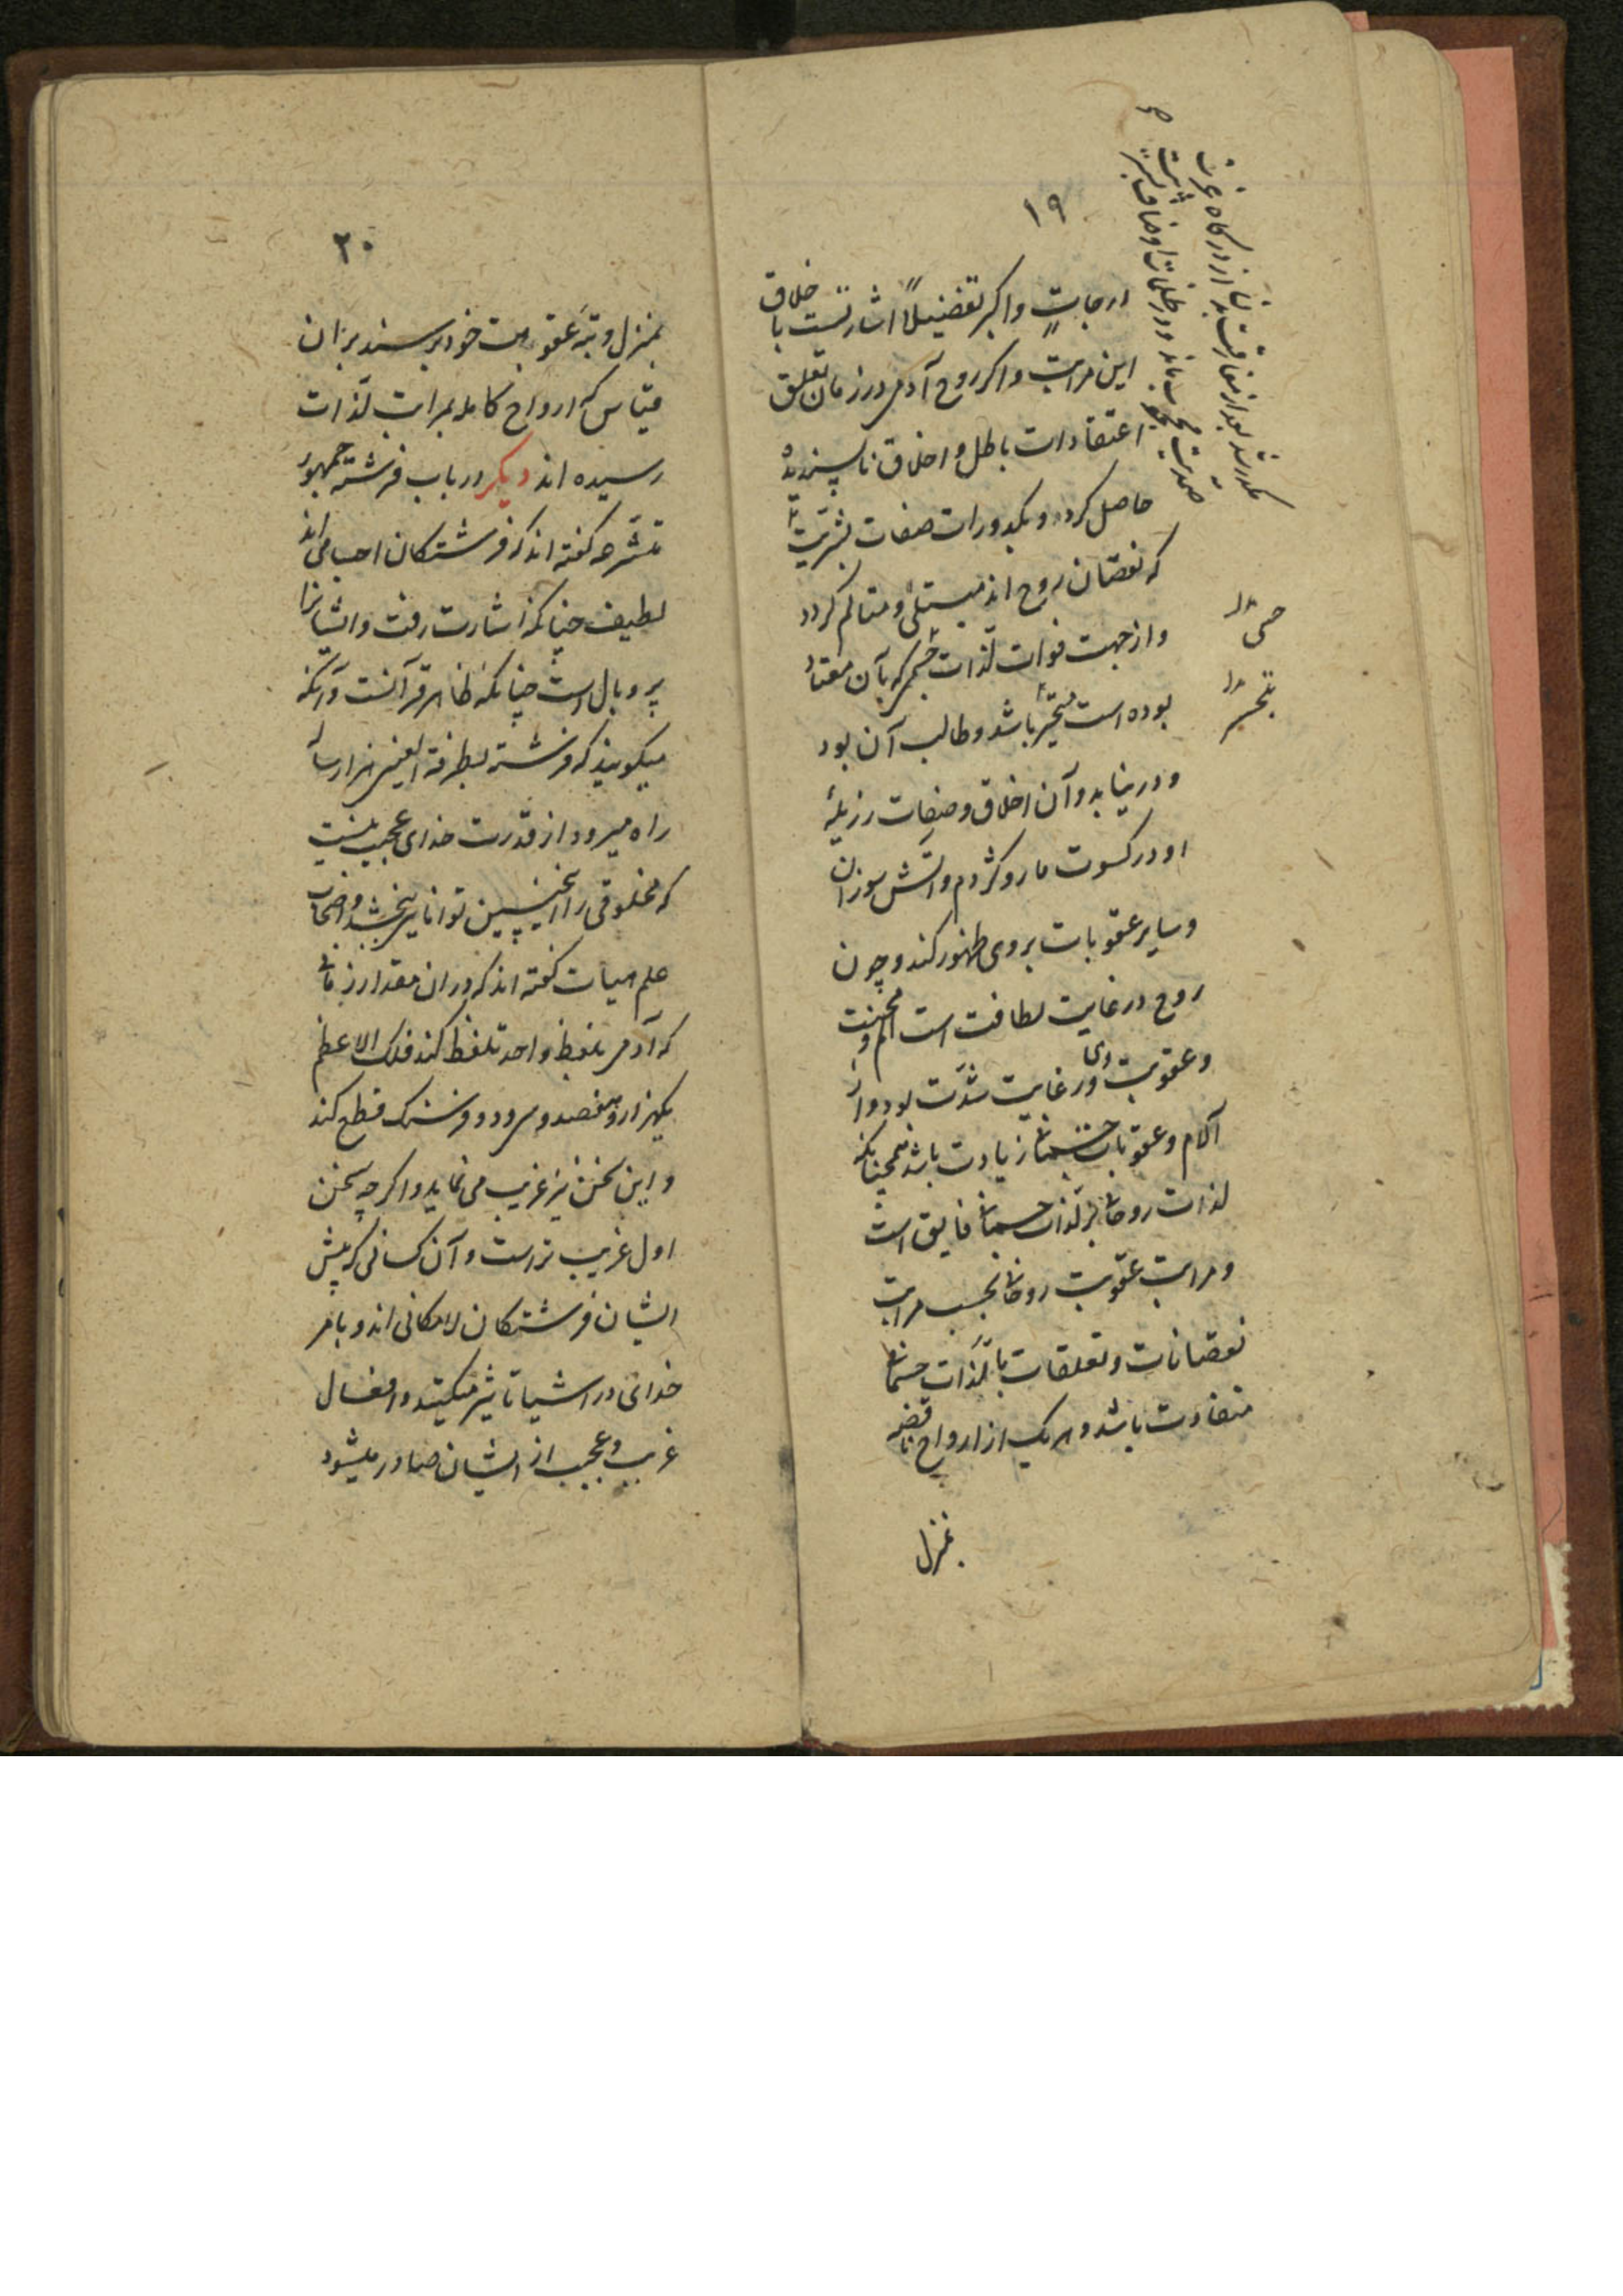 ۱۹
درجاتٍ واکبر تفضیلاً اشارتست باخلاق
این مراتب واکر روح آدمی در زمان تعلق
اعتقادات باطل و اخلاق ناپسندیدهٔ
حاصل کردد و بکدورات صفات بشریت
که نقصان روح اند مبتلی و متالم کردد
واز جهت فوات لذات جسمی که بآن معتاد
بوده است متحیر باشد وطالب آن بود
ودر نیابد وآن اخلاق وصفات رزیلهٔ
او در کسوت مار وکژدم وآتش سوزان
وسایر عقوبات بر وی ظهور کند وچون
روح در غایت لطافت است الم ومحنت
وعقوبت وی در غایت شدّت بود واز
آلام وعقوبات جسمانی زیادت باشد همچنانکه
لذات روحانی بر لذات جسمانی فایق است
ومراتب عقوبت روحانی بحسب مراتب
نقصانات وتعلقات بالذّات جسمانی
متفاوت باشد وهر یک از ارواح ناقصه
بمنزل
حسی
بتحسر
۲۰
بمنزل ورتبهٔ عقوبت خود برسند بران
قیاس که ارواح کامله بمراتب لذّات
رسیده اند دیکر در باب فرشته جمهور
متشرعه کفته اند که فرشتکان اجسامی اند
لطیف چنانکه اشارت رفت وایشانرا
پر وبال است چنانکه ظاهر قرآنست وآنکه
میکویند که فرشته بطرفة العینی هزار ساله
راه میرود از قدرت خدای عجیب نیست
که مخلوقی را اینچنین توانایی بخشد واصحاب
علم هیات کفته اند که در ان مقدار زمانی
که آدمی بلفظ واحد تلفظ کند فلک الاعظم
یکهزار وهفصد وسی ودو فرسنک قطع کند
واین سخن نیز غریب می نماید واکرچه سخن
اول غریب تر است وآن کسانی که پیش
ایشان فرشتکان لامکانی اند وبامر
خدای در اشیا تاثیر میکنند وافعال
غریب وعجیب از ایشان صادر میشود